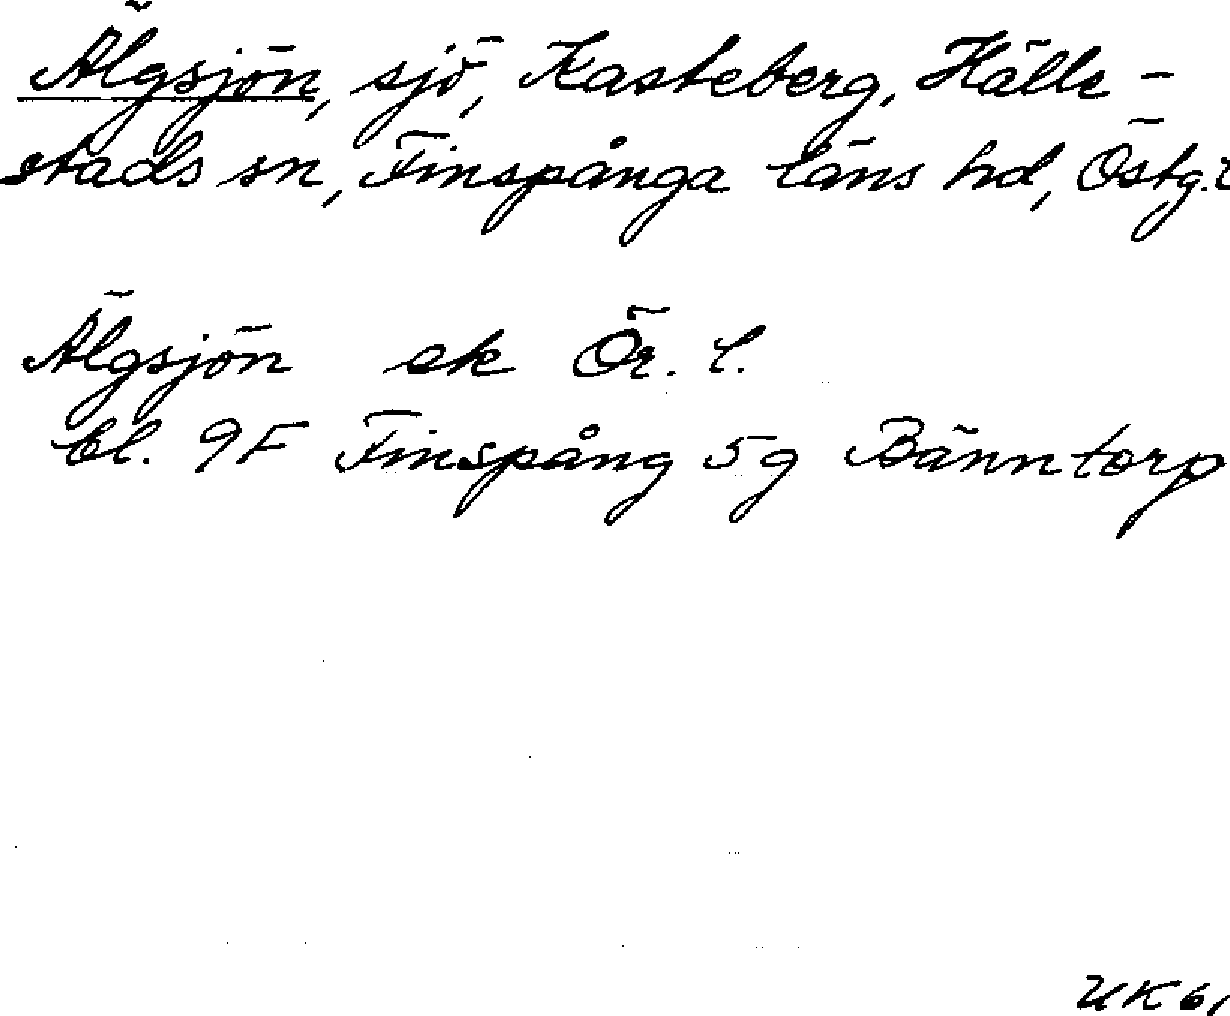 Älgsjön, sjö, Kasteberg, Hälle-
stads sn, Finspånga läns hd, Östg.l
Älgsjön ek Ör. l.
bl. 9F Finspång 5g Bänntorp
UK61